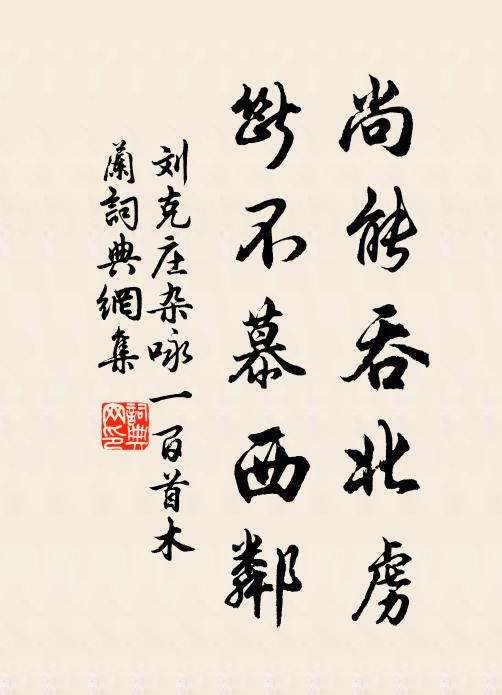 尚能吞北虜
断不慕西鄰
刘克庄杂咏一百首木
蘭詞典網集
詞典
网印